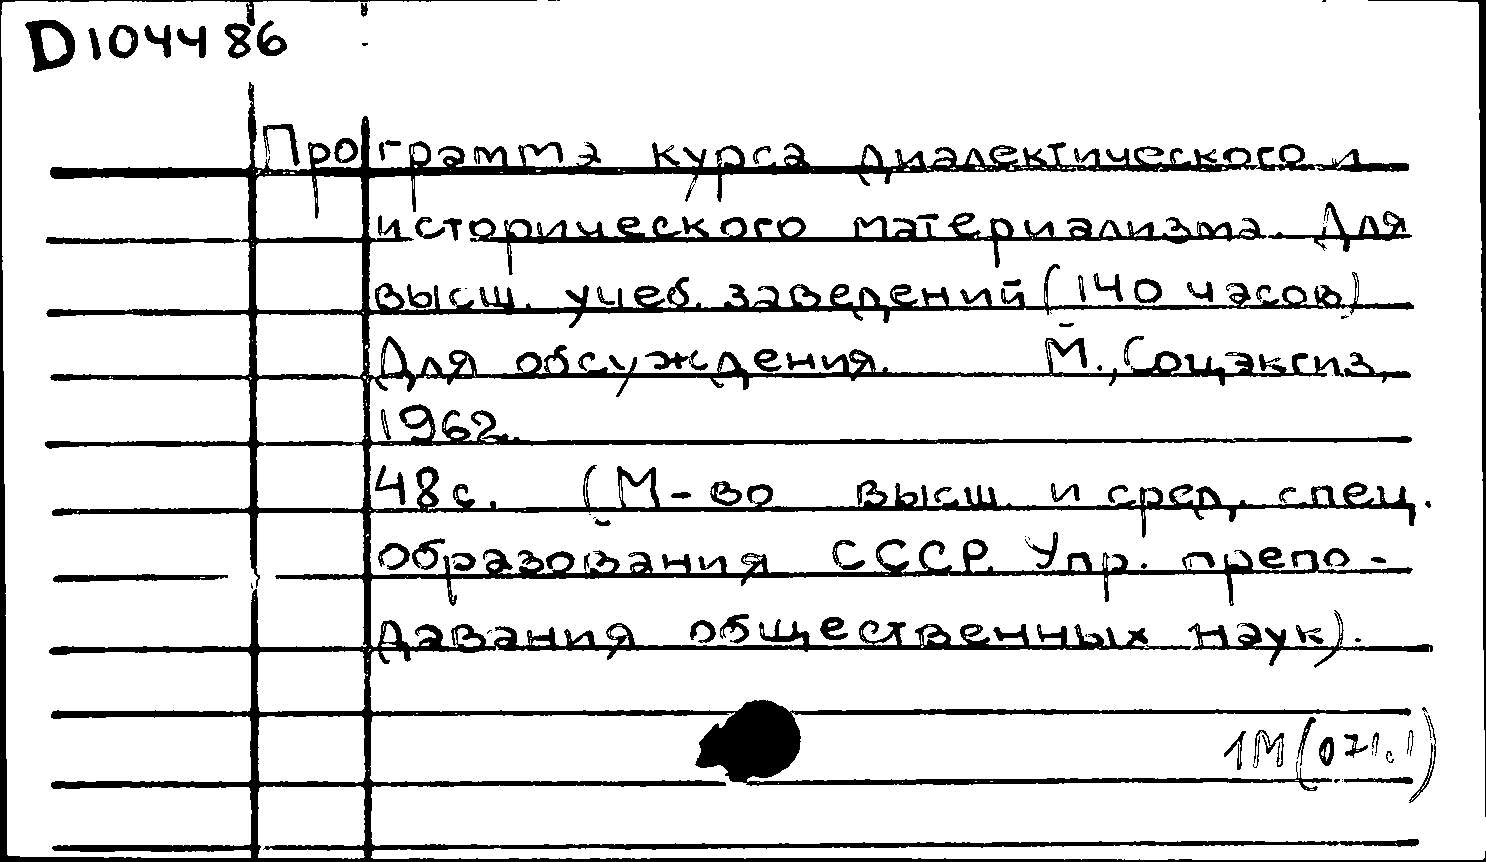 D104486
Программа курса диалектического и
исторического материализма. Для
высш. учеб. заведений (140 часов)
Для обсуждения. М., Соцэкгиз,
1962.
48 с. (М-во высш. и сред. спец.
образования СССР. Упр. препо-
давания общественных наук).
1М(071.1)